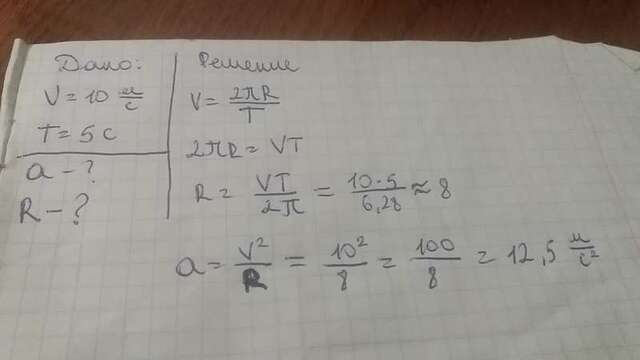 Дано:
V = 10 м/с
T = 5 с
a - ?
R - ?
Решение
V = 2πR/T
2πR = VT
R = VT/2π = 10·5/6,28 ≈ 8
a = V²/R = 10²/8 = 100/8 = 12,5 м/с²